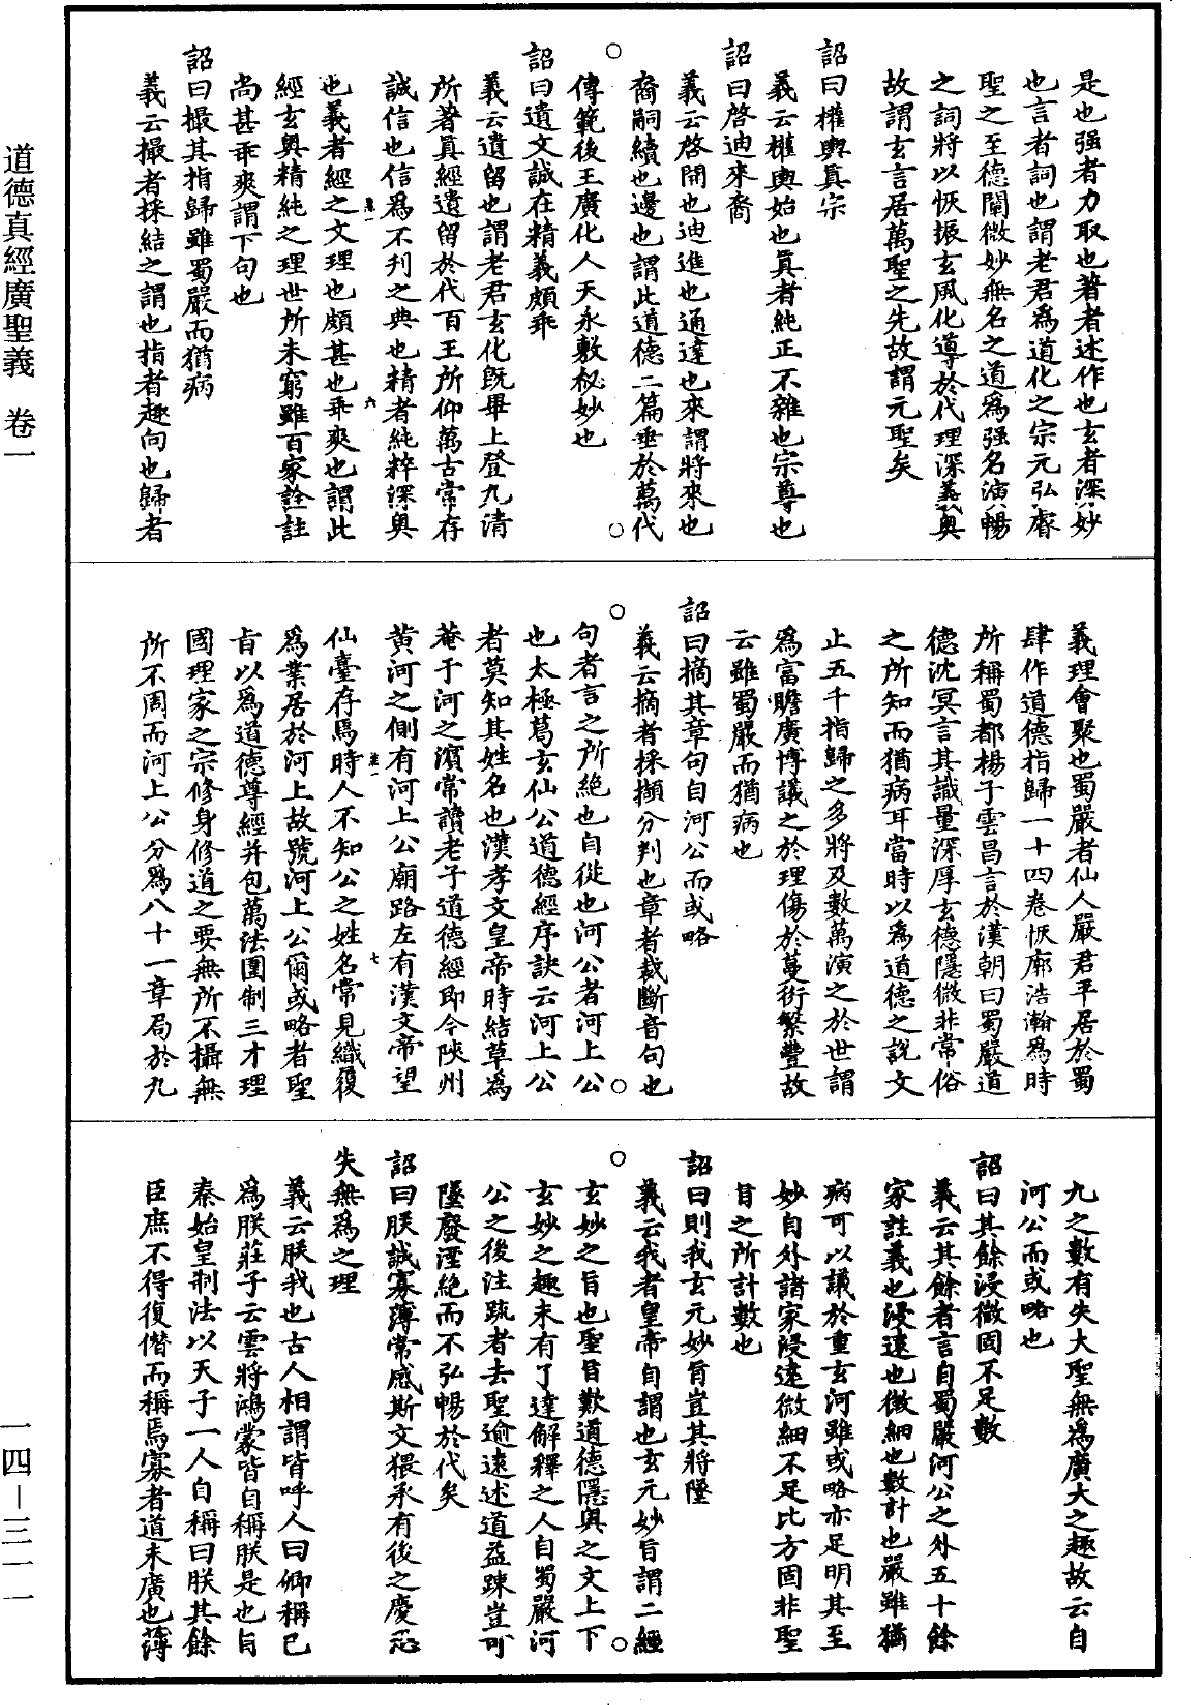 道德真經廣聖義　卷一
是也强者力取也著者述作也玄者深妙
也言者詞也謂老君爲道化之宗元弘睿
聖之至德闡微妙無名之道爲强名演暢
之詞將以恢振玄風化導於代理深義奥
故謂玄言居萬聖之先故謂元聖矣
詔曰權輿真宗
義云權輿始也真者純正不雜也宗尊也
詔曰啓迪來裔
義云啓開也迪進也通達也來謂將來也
裔嗣續也邊也謂此道德二篇垂於萬代
傳範後王廣化人天永敷祕妙也
詔曰遺文誠在精義頗乖
義云遺留也謂老君玄化既畢上登九清
所著真經遺留於代百王所仰萬古常存
誠信也信爲不刊之典也精者純粹深奥
卷一　六
也義者經之文理也頗甚也乖爽也謂此
經玄奥精純之理世所未窮雖百家詮註
尚甚乖爽謂下句也
詔曰撮其指歸雖蜀嚴而猶病
義云撮者採結之謂也指者趣向也歸者
義理會聚也蜀嚴者仙人嚴君平居於蜀
肆作道德指歸一十四卷恢廓浩瀚爲時
所稱蜀都楊子雲昌言於漢朝曰蜀嚴道
德沈冥言其識量深厚玄德隱微非常俗
之所知而猶病耳當時以爲道德之說文
止五千指歸之多將及數萬演之於世謂
爲富贍廣博議之於理傷於蔓衍繁豐故
云雖蜀嚴而猶病也
詔曰摘其章句自河公而或略
義云摘者採擷分判也章者裁斷音句也
句者言之所絶也自從也河公者河上公
也太極葛玄仙公道德經序訣云河上公
者莫知其姓名也漢孝文皇帝時結草爲
菴于河之濱常讀老子道德經即今陝州
黄河之側有河上公廟路左有漢文帝望
卷一　七
仙臺存焉時人不知公之姓名常見織履
爲業居於河上故號河上公爾或略者聖
旨以爲道德尊經并包萬法圍制三才理
國理家之宗修身修道之要無所不攝無
所不周而河上公分爲八十一章局於九
九之數有失大聖無爲廣大之趣故云自
河公而或略也
詔曰其餘浸微固不足數
義云其餘者言自蜀嚴河公之外五十餘
家註義也浸遠也微細也數計也嚴雖猶
病可以議於重玄河雖或略亦足明其至
妙自外諸家浸遠微細不足比方固非聖
旨之所計數也
詔曰則我玄元妙旨豈其將墜
義云我者皇帝自謂也玄元妙旨謂二經
玄妙之旨也聖旨歎道德隱奥之文上下
玄妙之趣未有了達解釋之人自蜀嚴河
公之後注疏者去聖逾遠述道益踈豈可
墜廢湮絶而不弘暢於代矣
詔曰朕誠寡薄常感斯文猥承有後之慶恐
失無爲之理
義云朕我也古人相謂皆呼人曰卿稱已
爲朕莊子云雲將鴻蒙皆自稱朕是也旨
秦始皇制法以天子一人自稱曰朕其餘
臣庶不得復僭而稱焉寡者道未廣也薄
一四－三一一